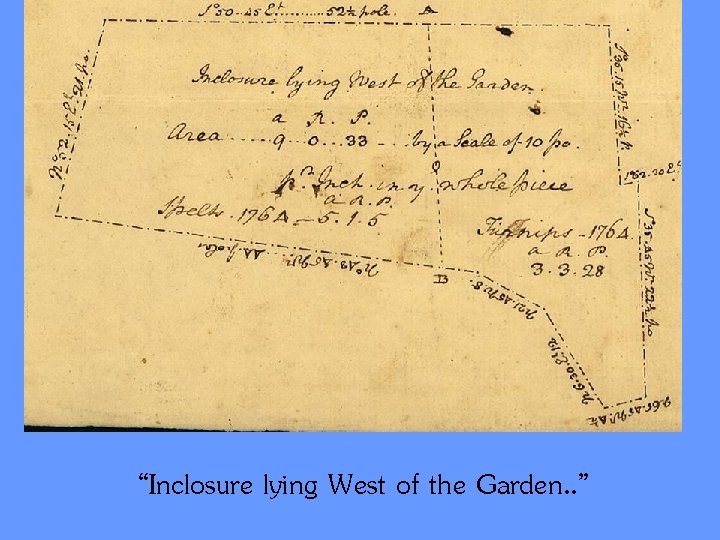 S°50..45 Et............52½ pole. A
Inclosure lying West of the Garden.
a R. P.
Area......9..0...33....by a Scale of 10 po.
pr. Inch. in ye. whole piece
a. R. P.
Spelts. 1764 - 5. 1. 5
Turnips - 1764.
a R. P.
3. 3. 28
B
N°43.45 Wt. 44 poles
N 21.45 W. 8
N. 6.30. Et 12
S°35.45 Wt. 22½ po
“Inclosure lying West of the Garden..”